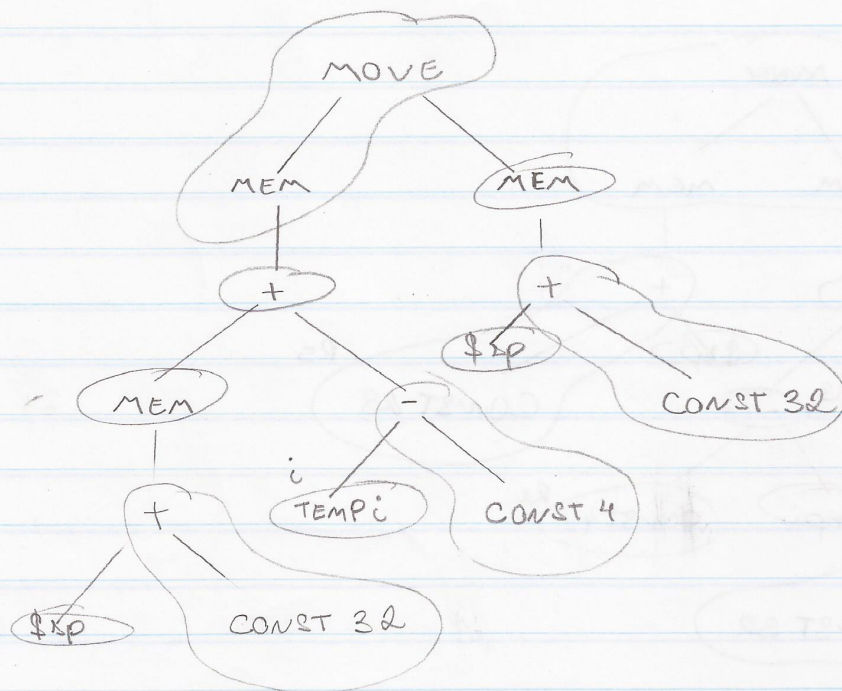 MOVE
MEM MEM
+ +
$sp
MEM - CONST 32
i
+ TEMP i CONST 4
$sp CONST 32